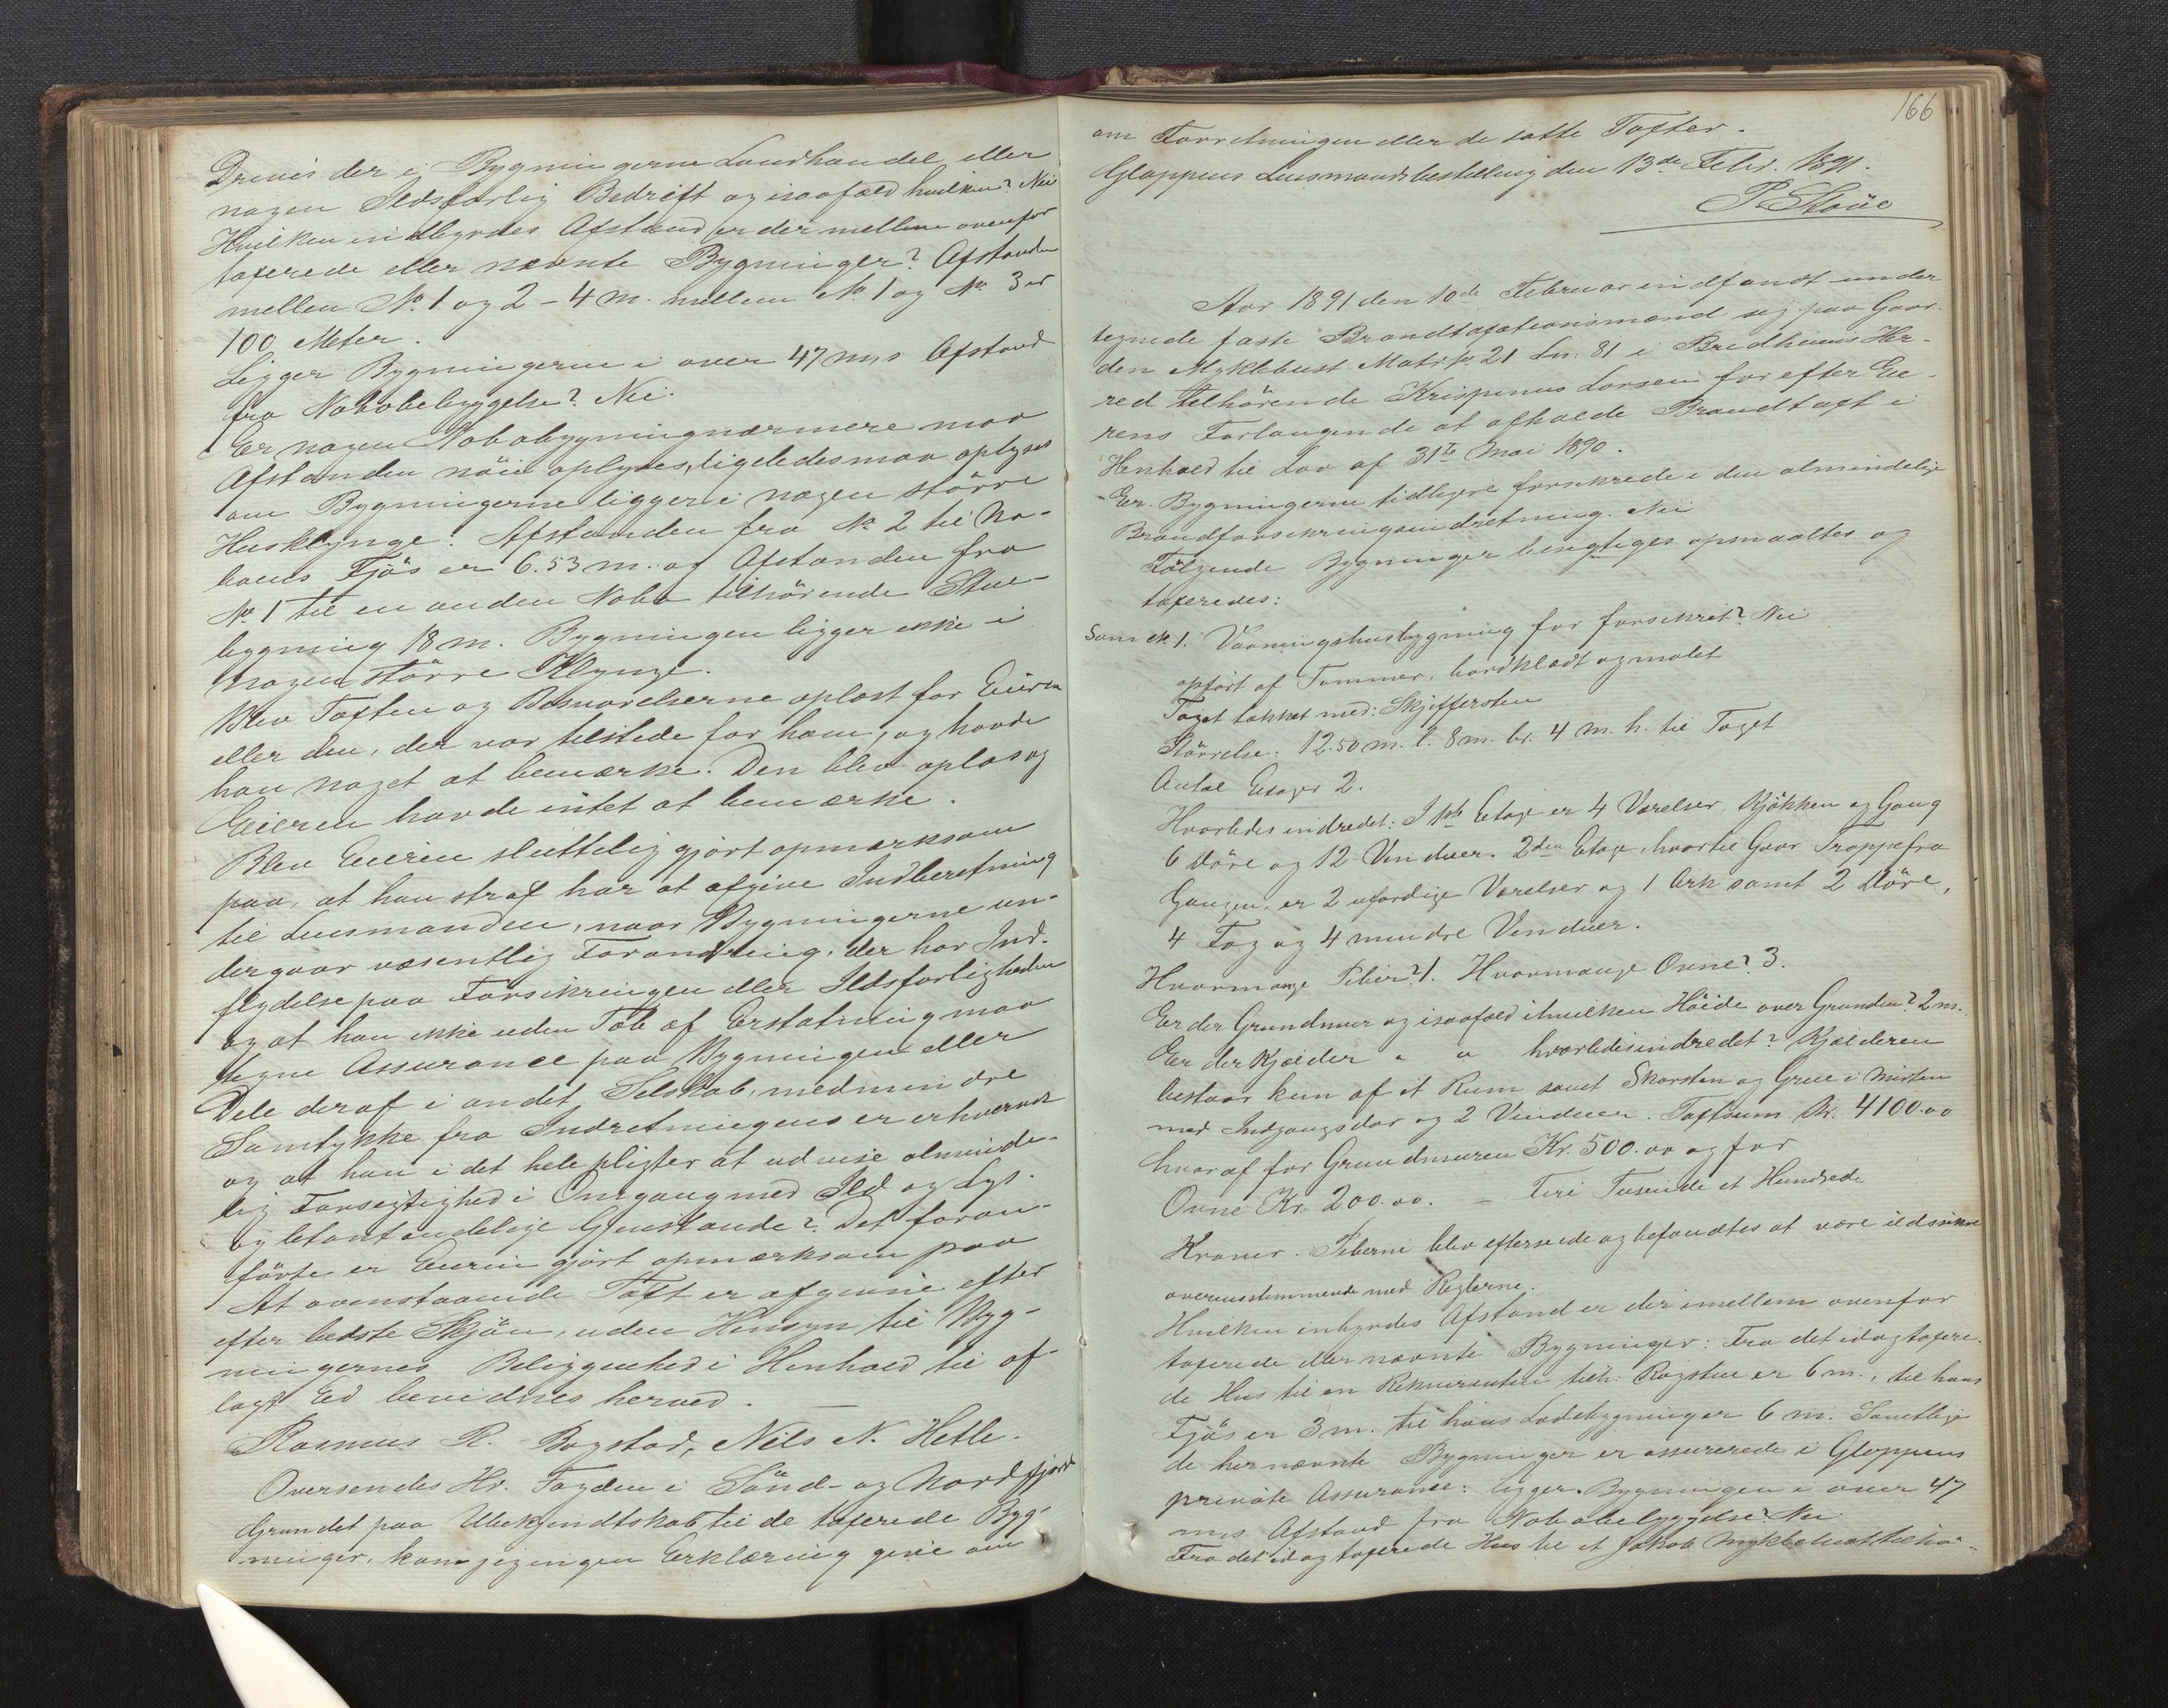 Drives der i Bygningerne Landhandel eller
nogen Ildsfarlig Bedrift og isaafald hvilken? Nei
Hvilken indbyrdes Afstand er der mellem ovenfor
taxerede eller nævnte Bygninger? Afstanden
mellem No. 1 og 2 - 4 m. mellem No 1 og No 3 er
100 Meter.
Ligger Bygningerne i over 47 m,s Afstand
fra Nabobebyggelse? Nei.
Er nogen Nabobygning nærmere maa
Afstanden nöie oplyses, ligeledes maa oplyses
om Bygningerne ligger i nogen större
Husklynge. Afstanden fra No 2 til Na-
boens Fjös er 6.53 m. og Afstanden fra
No 1 til en anden Nabo tilhörende Stue-
bygning 18 m. Bygningen ligger ikke i
nogen större Klynge.
Blev Taxten og Besvarelserne oplæst for Eieren
eller den, der var tilstede for ham, og havde
han noget at bemærke. Den blev oplæs og
Eieren havde intet at bemærke.
Blev Eieren sluttelig gjort opmærksom
paa, at han strax har at afgive Indberetning
til Lensmanden, naar Bygningerne un-
dergaar væsentlig Forandring, der har Ind-
flydelse paa Forsikringen eller Ildsfarligheden
og at han ikke uden Tab af Erstatning maa
tegne Assurance paa Bygningen eller
Dele deraf i andet Selskab, medmindre
Samtykke fra Indretningens er erhvervet
og at han i det hele pligter at udvise alminde-
lig Forsigtighed i Omgang med Ild og Lys
og letantændelige Gjenstande? Det foran-
förte er Eieren gjort opmærksom paa
At ovenstaaende Taxt er afgivne efter
efter bedste Skjön, uden Hensyn til Byg-
ningernes Beliggenhed i Henhold til af-
lagt Ed bevidnes herved.
Rasmus R. Bogstad, Nils N. Hetle.
Oversendes Hr. Fogden i Sönd- og Nordfjord
Grundet paa Ubekjendtskab til de taxerede Byg-
ninger, kan jeg ingen Erklæring give om
166
om Forretningen eller de satte Taxter.
Gloppens Lensmandsbestilling den 13de Febr. 1891.
P Støüe
Aar 1891 den 10de Februar indfandt under
tegnede faste Brandtaxationsmænd sig paa Gaar-
den Myklebust Matr. No 21 Ln: 81 i Bredheims Her-
red tilhörende Krispinus Larsen for efter Eie-
rens Forlangende at afholde Brandtaxt i
Henhold til Lov af 31te Mai 1890.
Er Bygningerne tidligere forsikrede i den almindelige
Brandforsikringsindretning. Nei
Fölgende Bygninger besigtiges opmaaltes og
taxeredes:
Som No 1. Vaaningshusbygning för forsikret? Nei
opfört af Tømmer, bordklædt og malet
Taget tækket med: Skjiffersten
Störrelse: 12.50 m. l. 8 m. br. 4 m. h. til Taget
Antal Etager 2.
Hvorledes indredet: I 1ste Etage er 4 Værelser, Kjökken og Gang
6 Döre og 12 Vinduer. 2den Etage, hvortil Gaar Trappe fra
Gangen, er 2 ufærdige Værelser og 1 Ark samt 2 Döre,
4 Fag og 4 mindre Vinduer.
Hvormange Piber? 1. Hvormange Ovne? 3.
Er der Grundmur og isaafald i hvilken Höide over Grunden? 2 m.
Er der Kjælder " " hvorledes indredet? Kjælderen
bestaar kun af et Rum samt Skorsten og Grue i Midten
med Indgangsdør og 2 Vinduer. Taxtsum Kr. 4100.00
hvoraf for Grundmuren Kr. 500.00 og for
Ovne Kr. 200.00. - Fire Tusinde et Hundrede
Kroner. Piberne blev efterseede og befandtes at være ildsikre
overensstemmende med Reglerne.
Hvilken inbyrdes Afstand er der imellem ovenfor
taxerede eller nævnte Bygninger: Fra det idag taxere-
de Hus til en Rekvirenten tilh: Røgstue er 6 m., til hans
Fjös er 3 m. til hans Ladebygning er 6 m. Samtlige
de her nævnte Bygninger er assurerede i Gloppens
private Assurance: ligger Bygningen i over 47
mrs Afstand fra Nabobebyggelse? Nei
Fra det idag taxerede Hus til et Jakob Myklebust tilhö-